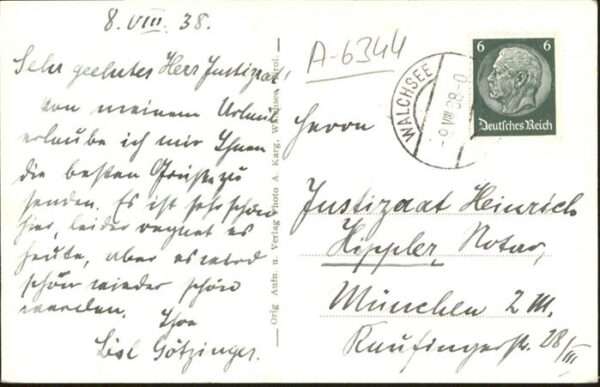 8.VIII.38.
Sehr geehrter Herr Justizrat!
von meinem Urlaub
erlaube ich mir Ihnen
die besten Grüsse zu
senden. Es ist sehr schön
hier, leider regnet es
heute, aber es wird
schön wieder schön
werden. Ihre
Lisl Götzinger.
Orig. Aufn. u. Verlag Photo A. Karg, Walchsee, Tirol.
A-6344
WALCHSEE
-9.VIII.38-0
6 6
Deutsches Reich
Herrn
Justizrat Heinrich
Hippler, Notar,
München 2 M.
Kaufingerstr. 28/III